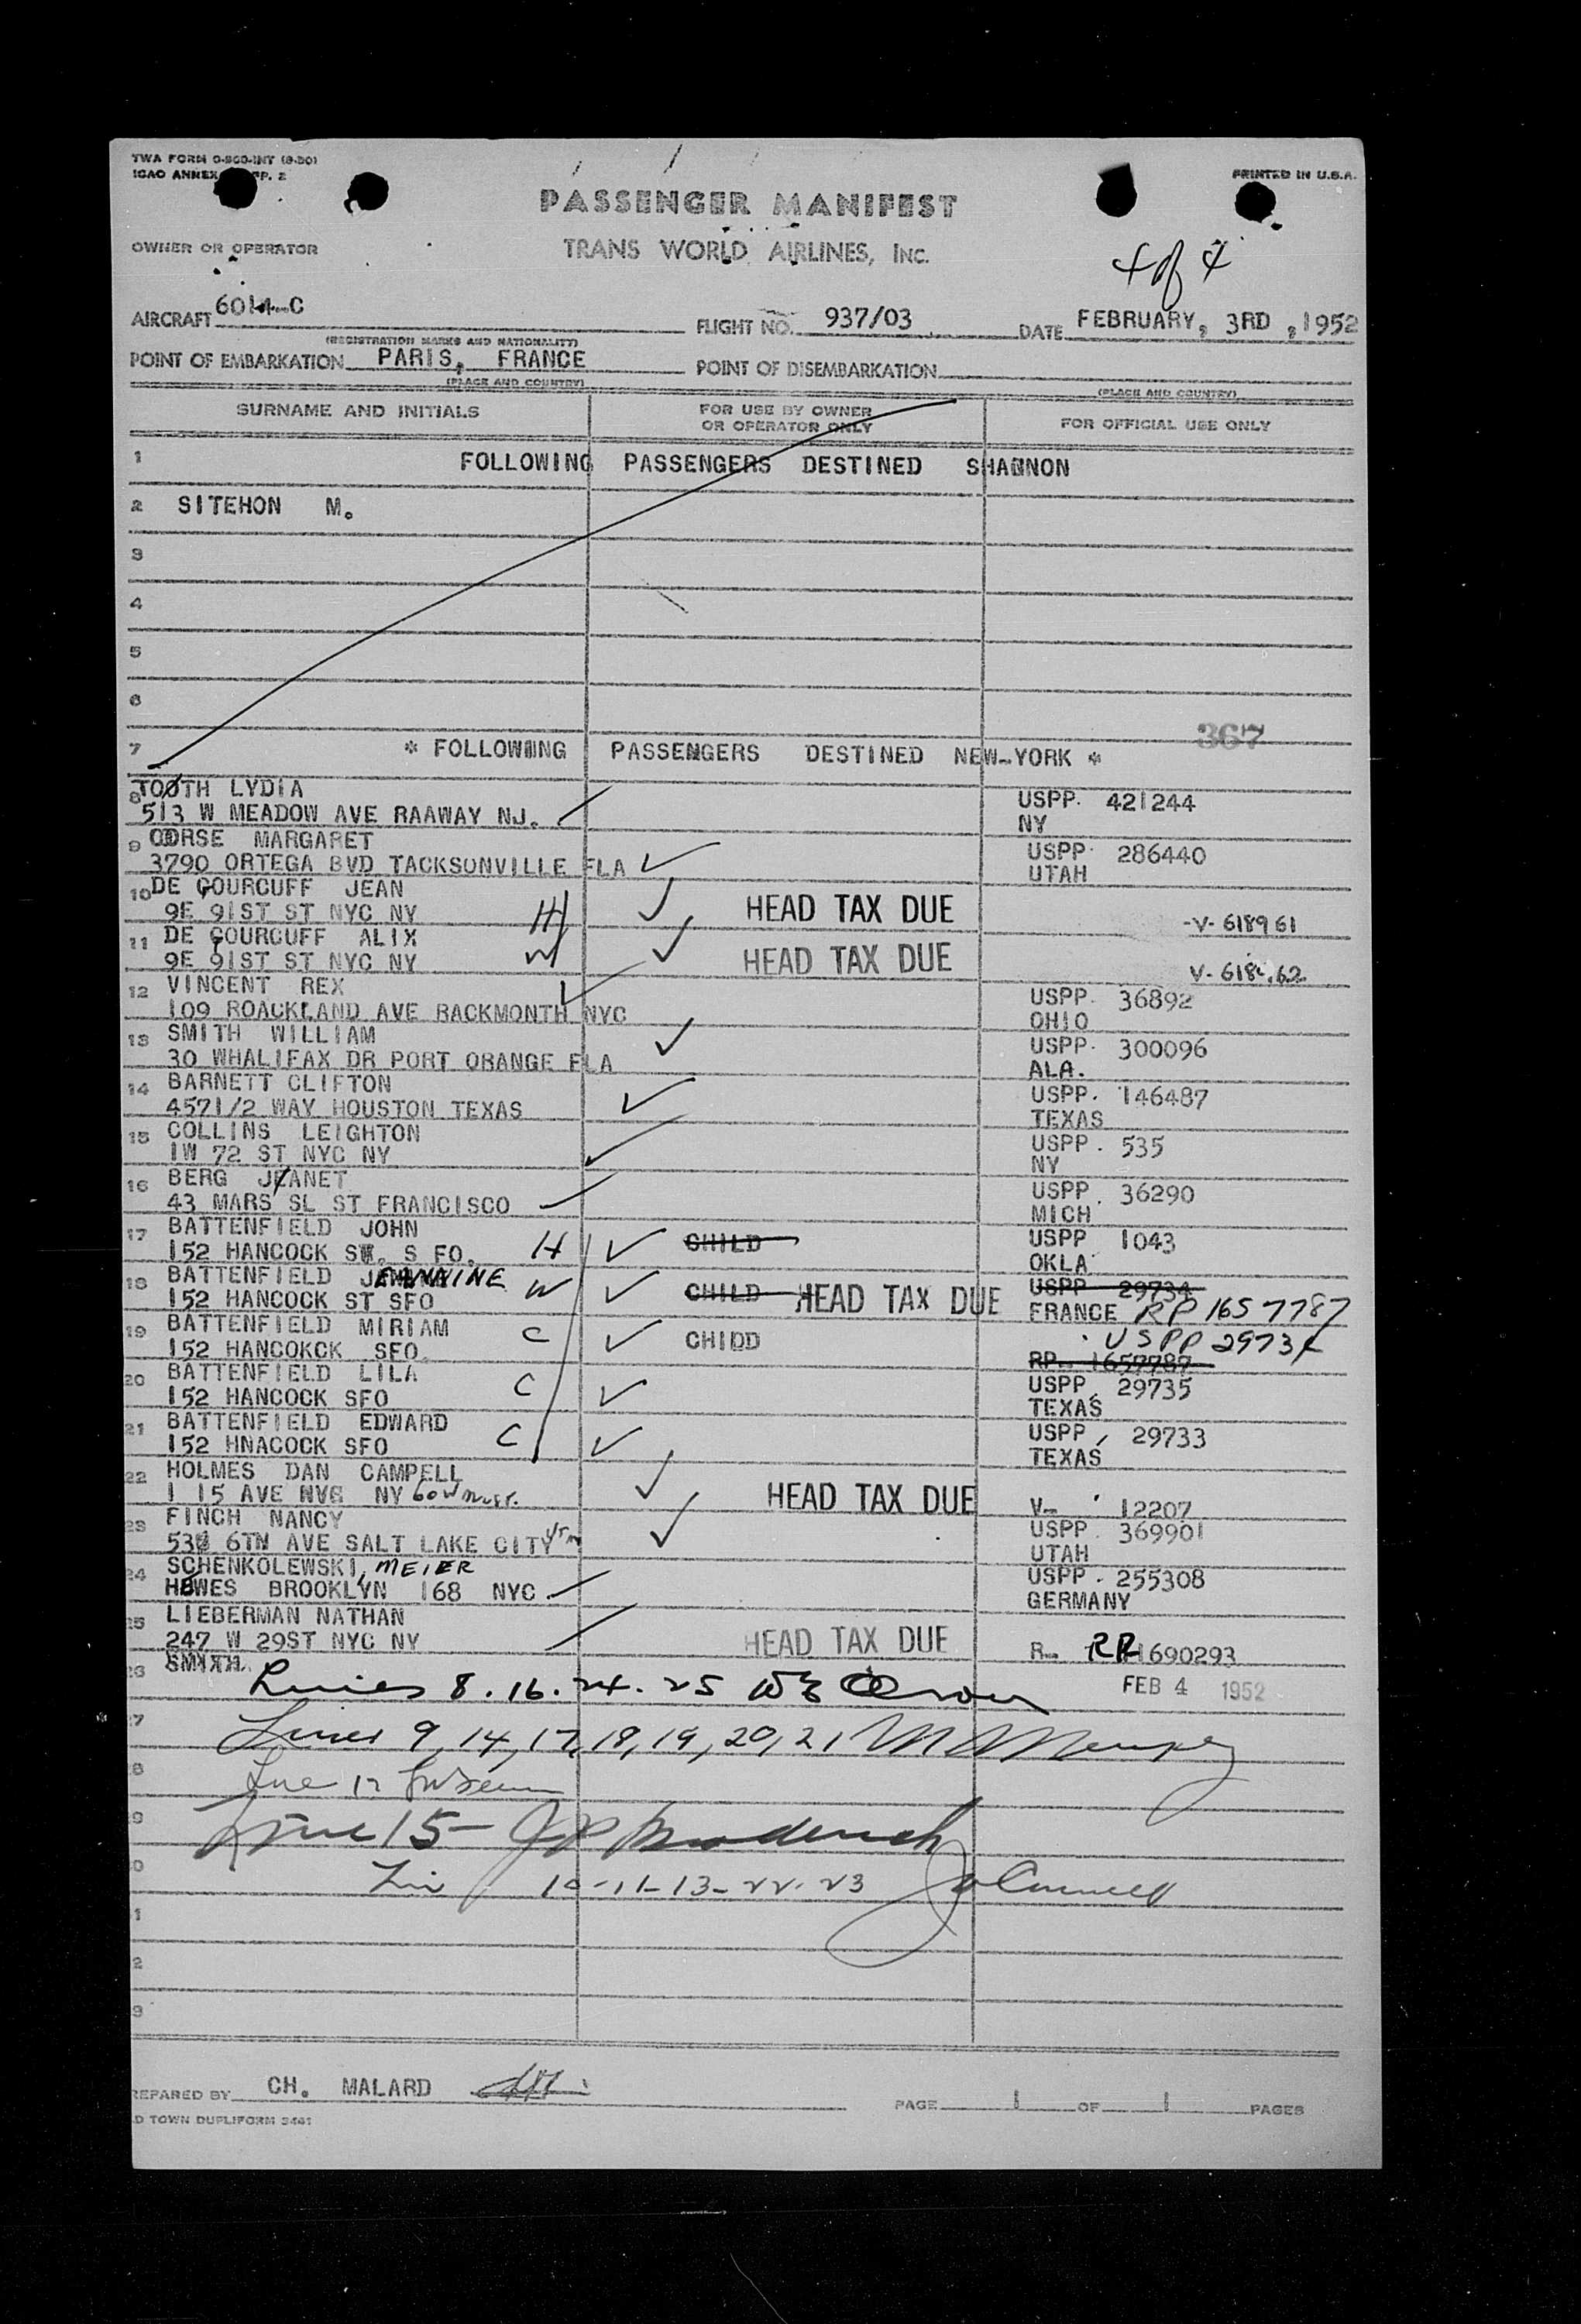 TWA FORM 0-800-INT (8-50)
ICAO ANNEX PP. 2
PRINTED IN U.S.A.
PASSENGER MANIFEST
OWNER OR OPERATOR TRANS WORLD AIRLINES, INC.
4 of 4
AIRCRAFT 6014-C FLIGHT NO. 937/03 DATE FEBRUARY, 3RD, 1952
(REGISTRATION MARKS AND NATIONALITY)
POINT OF EMBARKATION PARIS, FRANCE POINT OF DISEMBARKATION
(PLACE AND COUNTRY) (PLACE AND COUNTRY)
SURNAME AND INITIALS FOR USE BY OWNER OR OPERATOR ONLY FOR OFFICIAL USE ONLY
1 FOLLOWING PASSENGERS DESTINED SHANNON
2 SITEHON M.
3
4
5
6
367
7 * FOLLOWING PASSENGERS DESTINED NEW-YORK *
8 TOOTH LYDIA USPP. 421244
513 W MEADOW AVE RAAWAY NJ. NY
9 CORSE MARGARET USPP. 286440
3790 ORTEGA BVD TACKSONVILLE FLA UTAH
10 DE GOURCUFF JEAN
9E 91ST ST NYC NY H HEAD TAX DUE -V- 618961
11 DE GOURCUFF ALIX
9E 91ST ST NYC NY W HEAD TAX DUE V- 618962
12 VINCENT REX USPP. 36892
109 ROACKLAND AVE BACKMONTH NYC OHIO
13 SMITH WILLIAM USPP. 300096
30 WHALIFAX DR PORT ORANGE FLA ALA.
14 BARNETT CLIFTON USPP. 146487
4571/2 WAY HOUSTON TEXAS TEXAS
15 COLLINS LEIGHTON USPP. 535
1W 72 ST NYC NY NY
16 BERG JEANET USPP. 36290
43 MARS SL ST FRANCISCO MICH
17 BATTENFIELD JOHN USPP 1043
152 HANCOCK ST. S FO. H CHILD OKLA
18 BATTENFIELD JEANNINE W USPP 29734
152 HANCOCK ST SFO CHILD HEAD TAX DUE FRANCE RP 1657787
19 BATTENFIELD MIRIAM C USPP 29734
152 HANCOKCK SFO. CHIDD RP- 1657787
20 BATTENFIELD LILA C USPP. 29735
152 HANCOCK SFO TEXAS
21 BATTENFIELD EDWARD C USPP, 29733
152 HNACOCK SFO TEXAS
22 HOLMES DAN CAMPELL
1 15 AVE NY HEAD TAX DUE V- 12207
23 FINCH NANCY USPP. 369901
6TH AVE SALT LAKE CITY UTAH
24 SCHENKOLEWSKI, MEIER USPP. 255308
HEWES BROOKLYN 168 NYC GERMANY
25 LIEBERMAN NATHAN
247 W 29ST NYC NY HEAD TAX DUE R- RR 1690293
26 SMITH. FEB 4 1952
Lines 8. 16. 24. 25
Lines 9, 14, 17, 18, 19, 20, 21
Line 12
Line 15-
10-11-13-22-23
PREPARED BY CH. MALARD
PAGE 1 OF 1 PAGES
D TOWN DUPLIFORM 3441